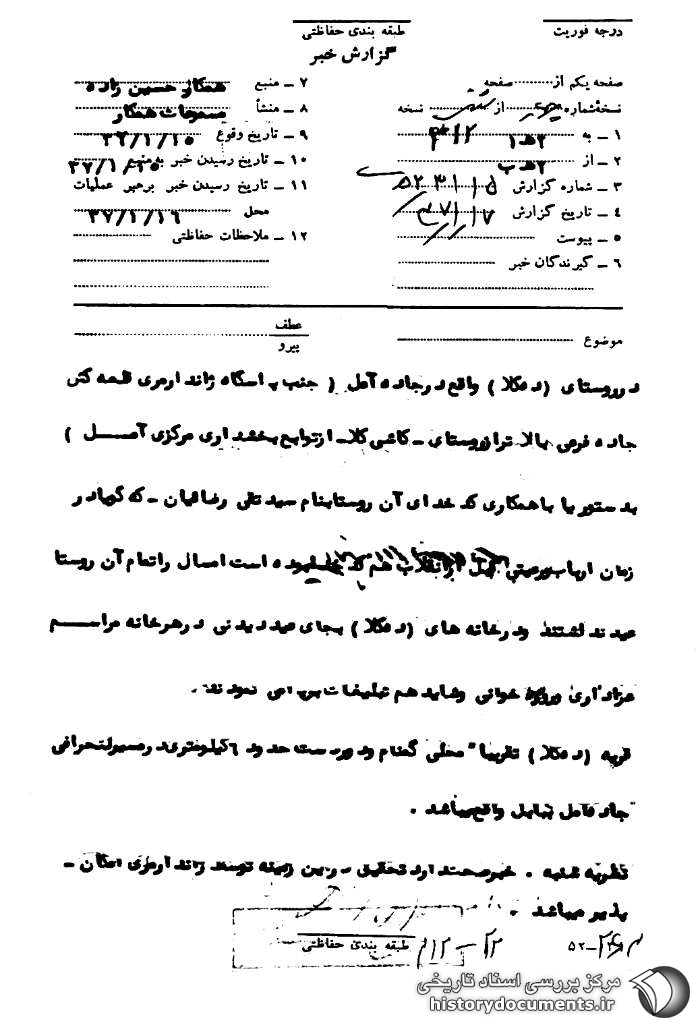 درجه فوریت
طبقه بندی حفاظتی
گزارش خبر
صفحه یکم از صفحه
نسخه شماره از نسخه
۱ ـ به ۳هـ۱ ۳۱۲
۲ ـ از ۲هـ ب
۳ ـ شماره گزارش
۴ ـ تاریخ گزارش ۴۷/۱/۱۷
۵ ـ پیوست
۶ ـ گیرندگان خبر
۷ ـ منبع همکار حسین زاده
۸ ـ منشأ مسموعات همکار
۹ ـ تاریخ وقوع
۱۰ ـ تاریخ رسیدن خبر به منبع
۱۱ ـ تاریخ رسیدن خبر برهبر عملیات
محل
۱۲ ـ ملاحظات حفاظتی
موضوع
عطف
پیرو
در روستای ( دهکلا ) واقع در جاده آمل ( جنب پاسگاه ژاندارمری قلعه کش
جاده فرعی بالاتر از روستای ـ کاشی کلا ـ از توابع بخشداری مرکزی آمــل )
بدستور یا با همکاری کدخدای آن روستا بنام سید تقی رضائیان ـ که گویا در
زمان ارباب هم کدخدا بوده است امسال را تمام آن روستا
عید نداشتند و در خانه های ( دهکلا ) بجای عید دیدنی در هر خانه مراســم
عزاداری و روضه خوانی و شاید هم تبلیغات می نمودند .
قریه ( دهکلا ) تقریبا" محلی گمنام و دور دست حدود ۶ کیلومتری در مسیر انحرافی
جاده آمل ببابل واقع میباشد .
نظریه شنبه . خبر صحت دارد تحقیق در این زمینه توسط ژاندارمری امکان ـ
پذیر میباشد .
طبقه بندی حفاظتی
۱۲ـ۲۳
۵۲ـ
مرکز بررسی اسناد تاریخی
historydocuments.ir